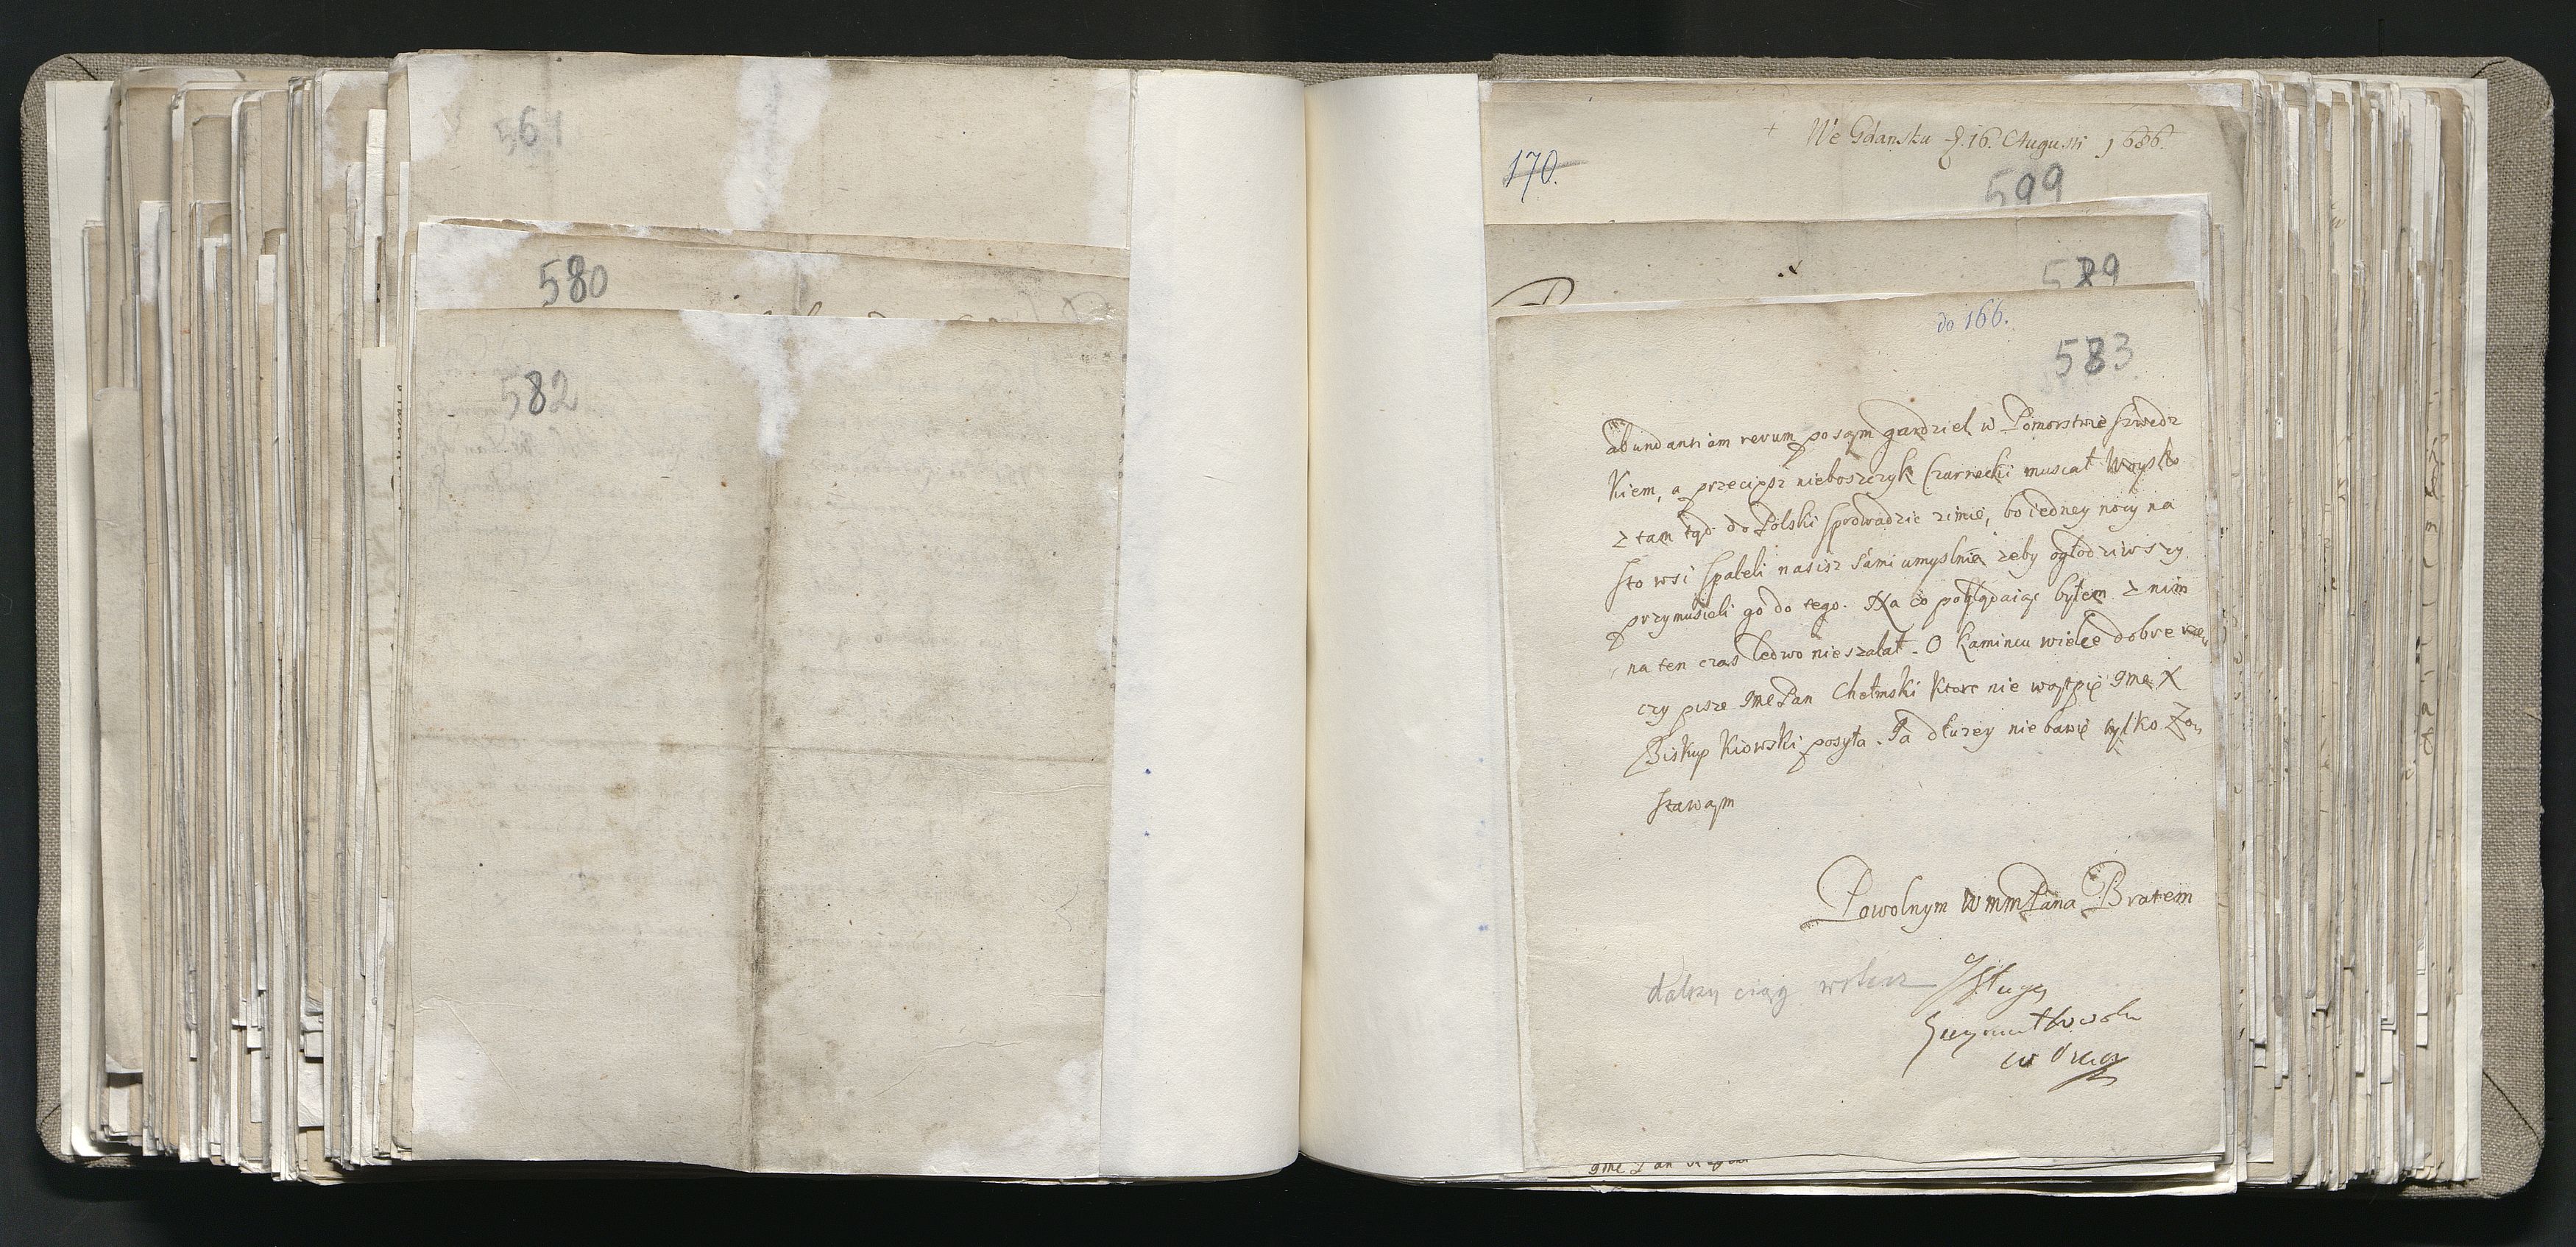 564
580
582
170.
We Gdansku d. 16. Augusti 1686.
599
589
do 166.
583
abundantiam rerum posąm gardziel w Pomorstwie szwedz
kiem, a przeciesz nieboszczyk Czarnecki musiał woysko
z tam tąd do Polski sprowadzic zimie, bo iedney nocy na
sto wsi spaleli nasisz sami umyslnie zeby ogłodziwszy
przymusieli go do tego. Na co poglądaiąc byłem z nim
na ten czas ledwo nieszalał. O Kamincu wiele dobre rze
czy pisze Jme Pan Chełmski ktore nie wątpię Jme X
Biskup Kiowski posyła. Ja dłuzey nie bawię tylko Zo
stawąm
Powolnym WmmPana Bratem
dalszy ciąg
Sługą
Jme Pan